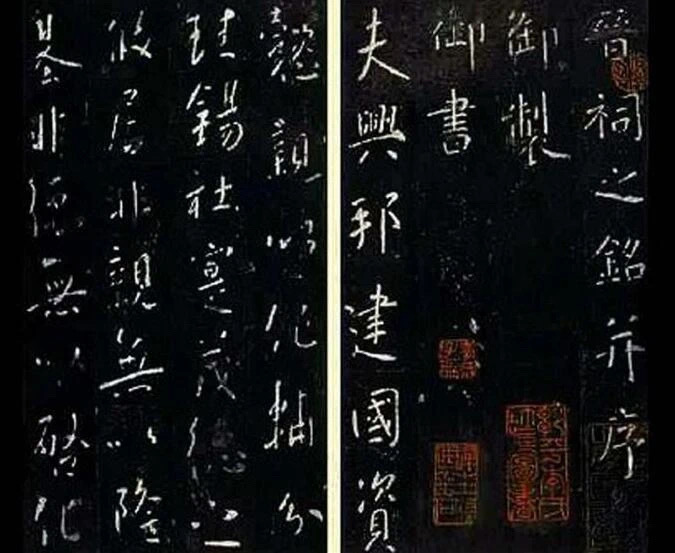 晋祠之銘并序
御製
御書
夫興邦建國資
懿親以作輔分
珪錫社寔茂德之
攸居非親無以隆
基非德無以啓化